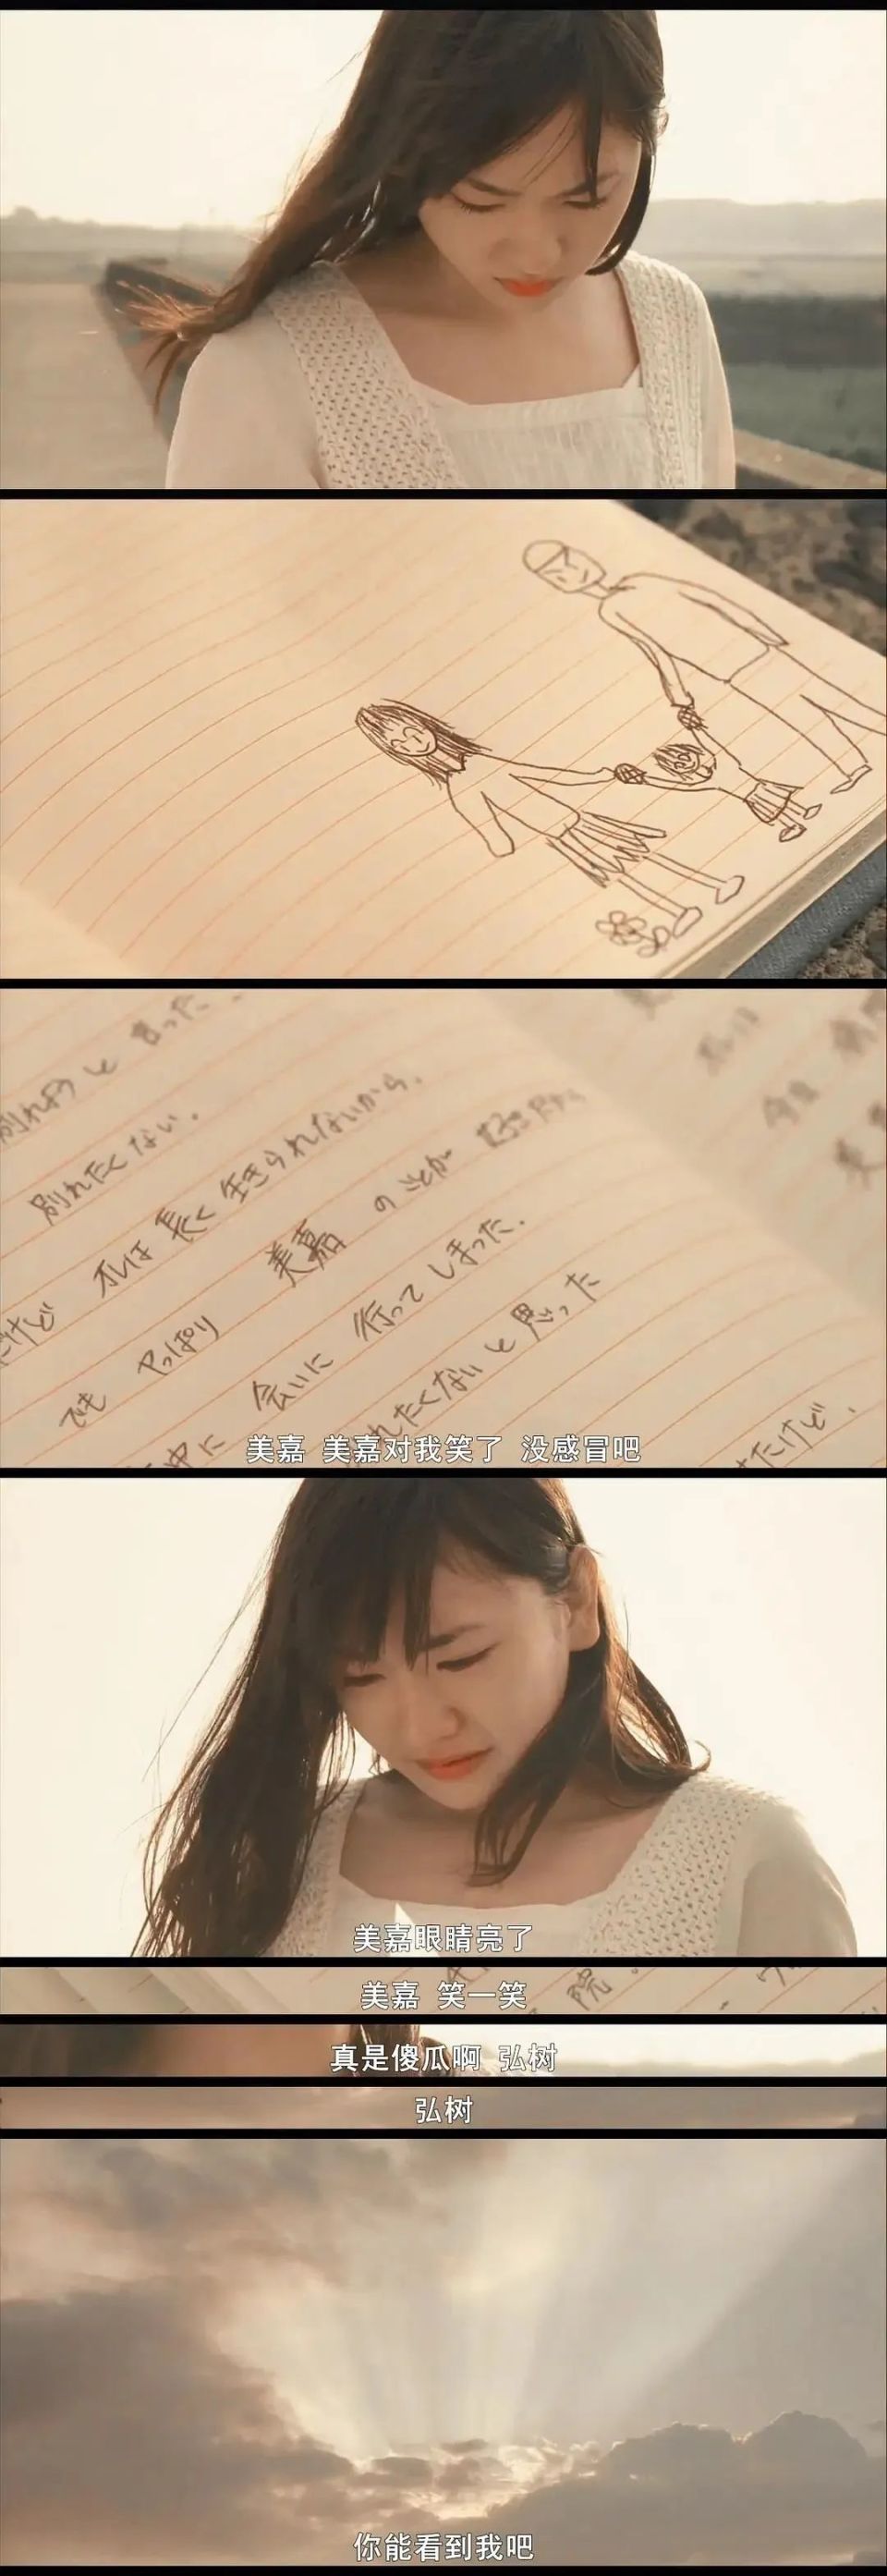 別れようと言った.
別れたくない.
だけど オレは 長く 生きられないから.
でも やっぱり 美嘉 のことが
中に 会いに 行って しまった.
れたくないと思った
たけど.
美嘉 美嘉对我笑了 没感冒吧
美嘉眼睛亮了
院.
美嘉 笑一笑
真是傻瓜啊 弘树
弘树
你能看到我吧